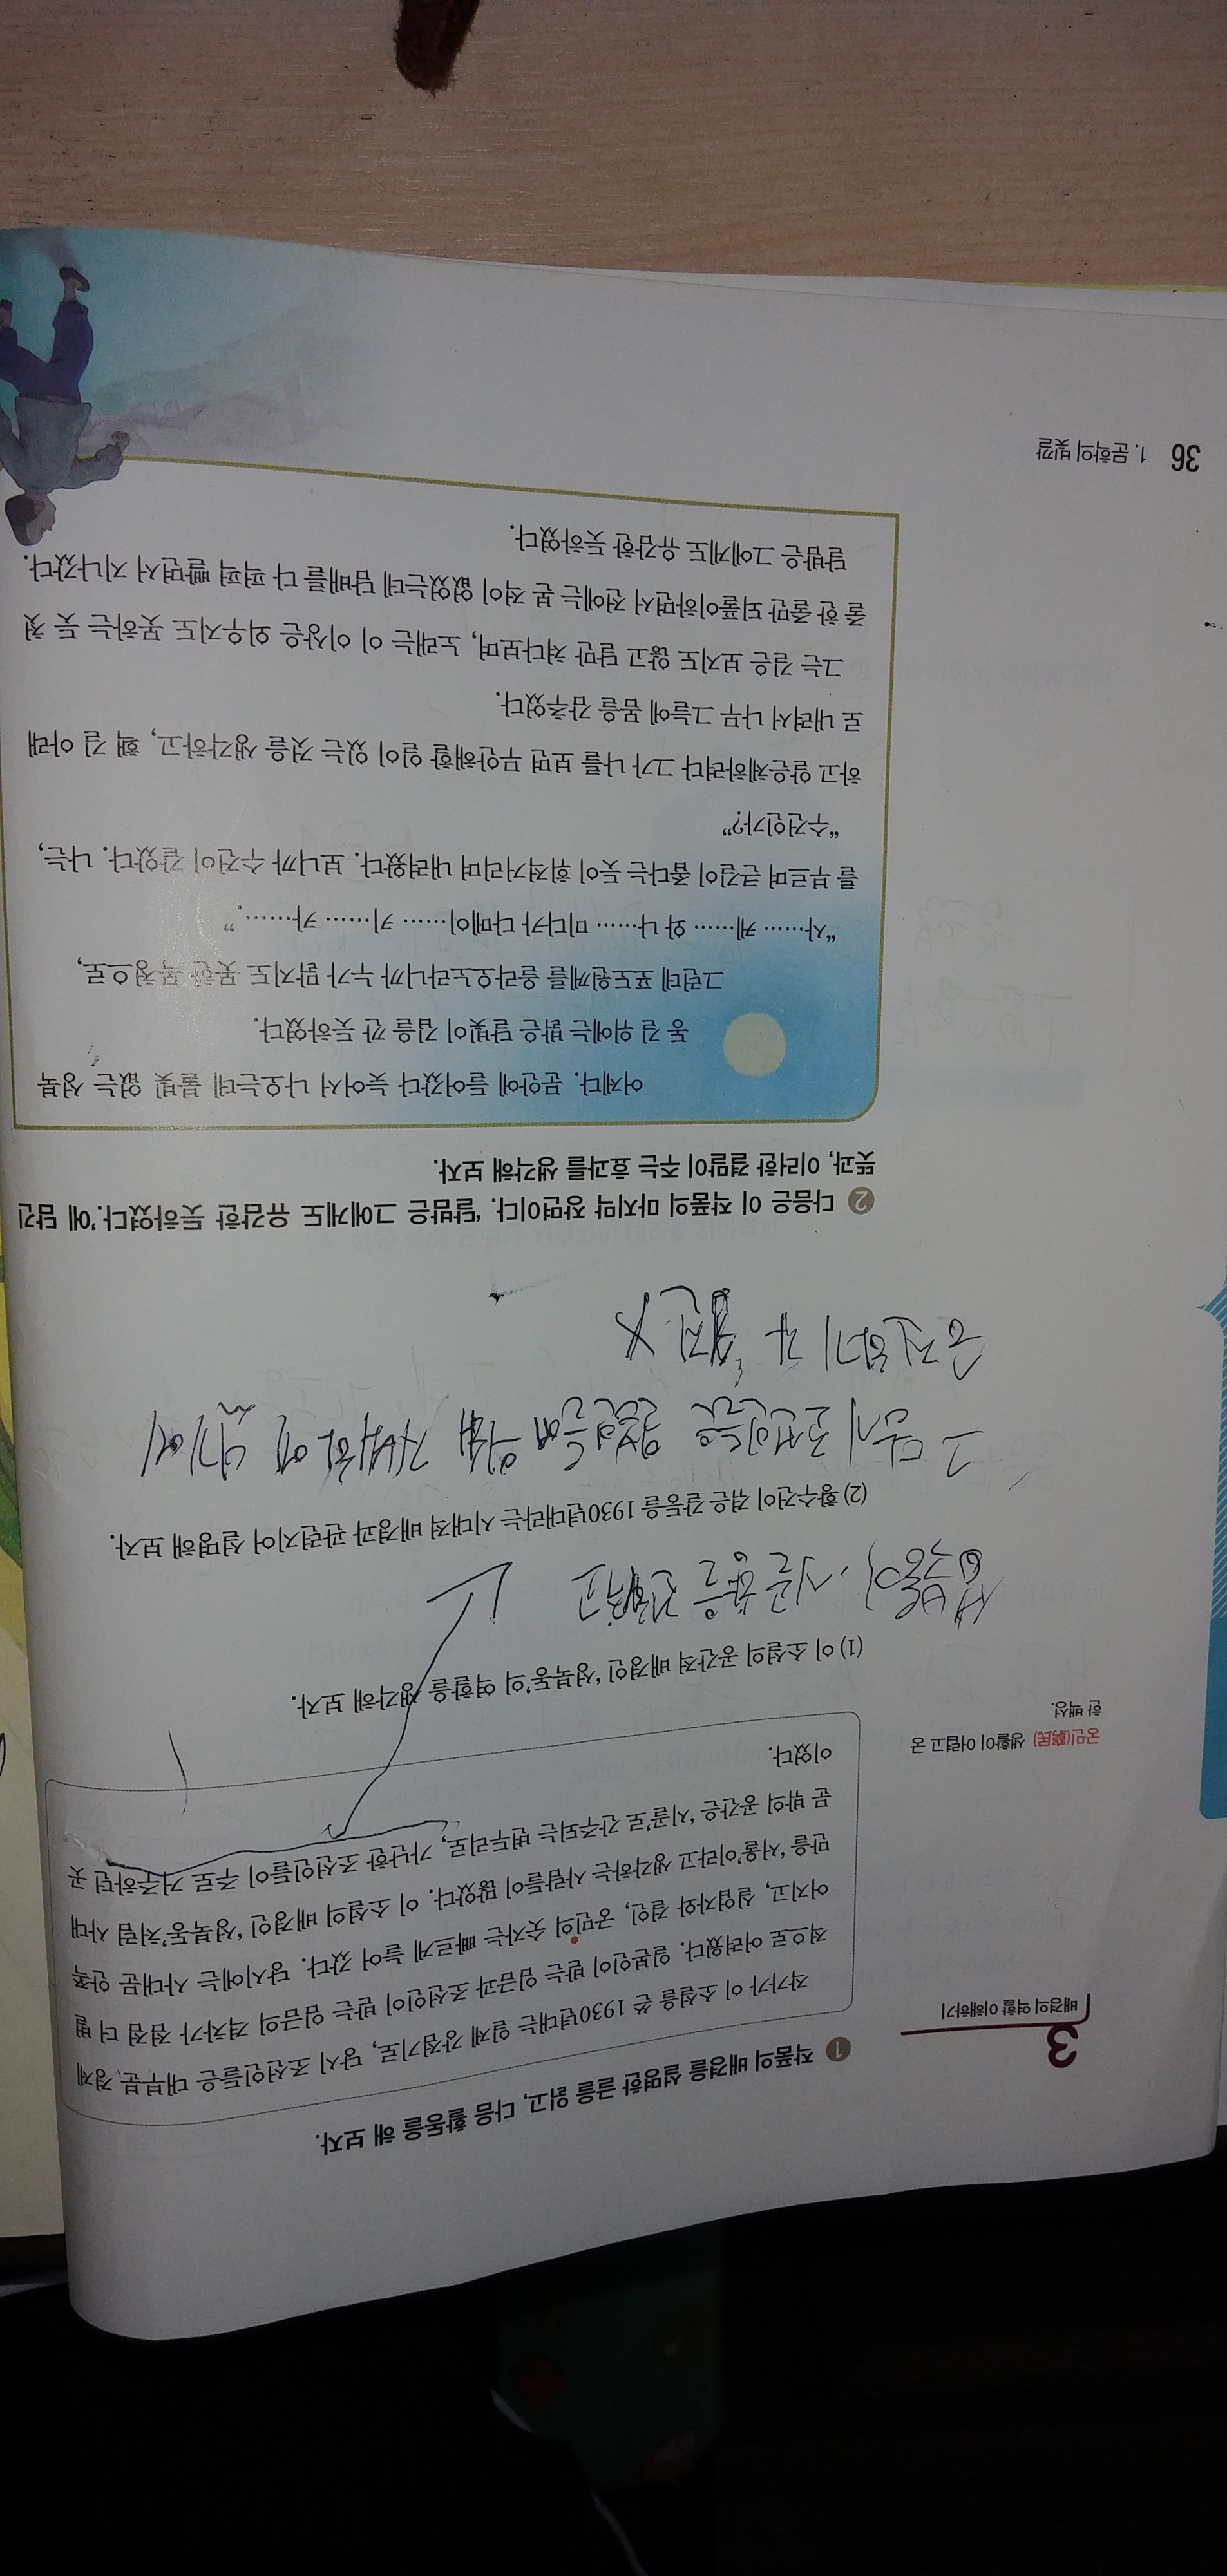 3
배경의 역할 이해하기
1 작품의 배경을 설명한 글을 읽고, 다음 활동을 해 보자.
작가가 이 소설을 쓴 1930년대는 일제 강점기로, 당시 조선인들은 대부분 경제
적으로 어려웠다. 일본인이 받는 임금과 조선인이 받는 임금의 격차가 점점 더 벌
어지고, 실업자와 걸인, 궁민의 숫자는 빠르게 늘어 갔다. 당시에는 사대문 안쪽
만을 '서울'이라고 생각하는 사람들이 많았다. 이 소설의 배경인 '성북동'처럼 사대
문 밖의 공간은 '시골'로 간주되는 변두리로, 가난한 조선인들이 주로 거주하던 곳
이었다.
궁민(窮民) 생활이 어렵고 궁
한 백성.
(1) 이 소설의 공간적 배경인 '성북동'의 역할을 생각해 보자.
성북동이 시골
(2) 황수건이 겪은 갈등을 1930년대라는 시대적 배경과 관련지어 설명해 보자.
그 당시 조선인들은 일본인들에 의해 지배하
2 다음은 이 작품의 마지막 장면이다. '달밤은 그에게도 유감한 듯하였다.'에 담긴
뜻과, 이러한 결말이 주는 효과를 생각해 보자.
어제다. 문안에 들어갔다 늦어서 나오는데 불빛 없는 성북
동 길 위에는 밝은 달빛이 깁을 깐 듯하였다.
그런데 포도원께를 올라오노라니까 누가 맑지도 못한 목청으로,
“사…… 케…… 와 나…… 미다카 다메이…… 키…… 카…….”
를 부르며 큰길이 좁다는 듯이 휘적거리며 내려왔다. 보니까 수건이 같았다. 나는,
“수건인가?”
하고 알은체하려다 그가 나를 보면 무안해할 일이 있는 것을 생각하고, 휙 길 아래
로 내려서 나무 그늘에 몸을 감추었다.
그는 길은 보지도 않고 달만 쳐다보며, 노래는 이 이상은 외우지도 못하는 듯 첫
줄 한 줄만 되풀이하면서 전에는 본 적이 없었는데 담배를 다 퍽퍽 빨면서 지나갔다.
달밤은 그에게도 유감한 듯하였다.
36 1. 문학의 빛깔